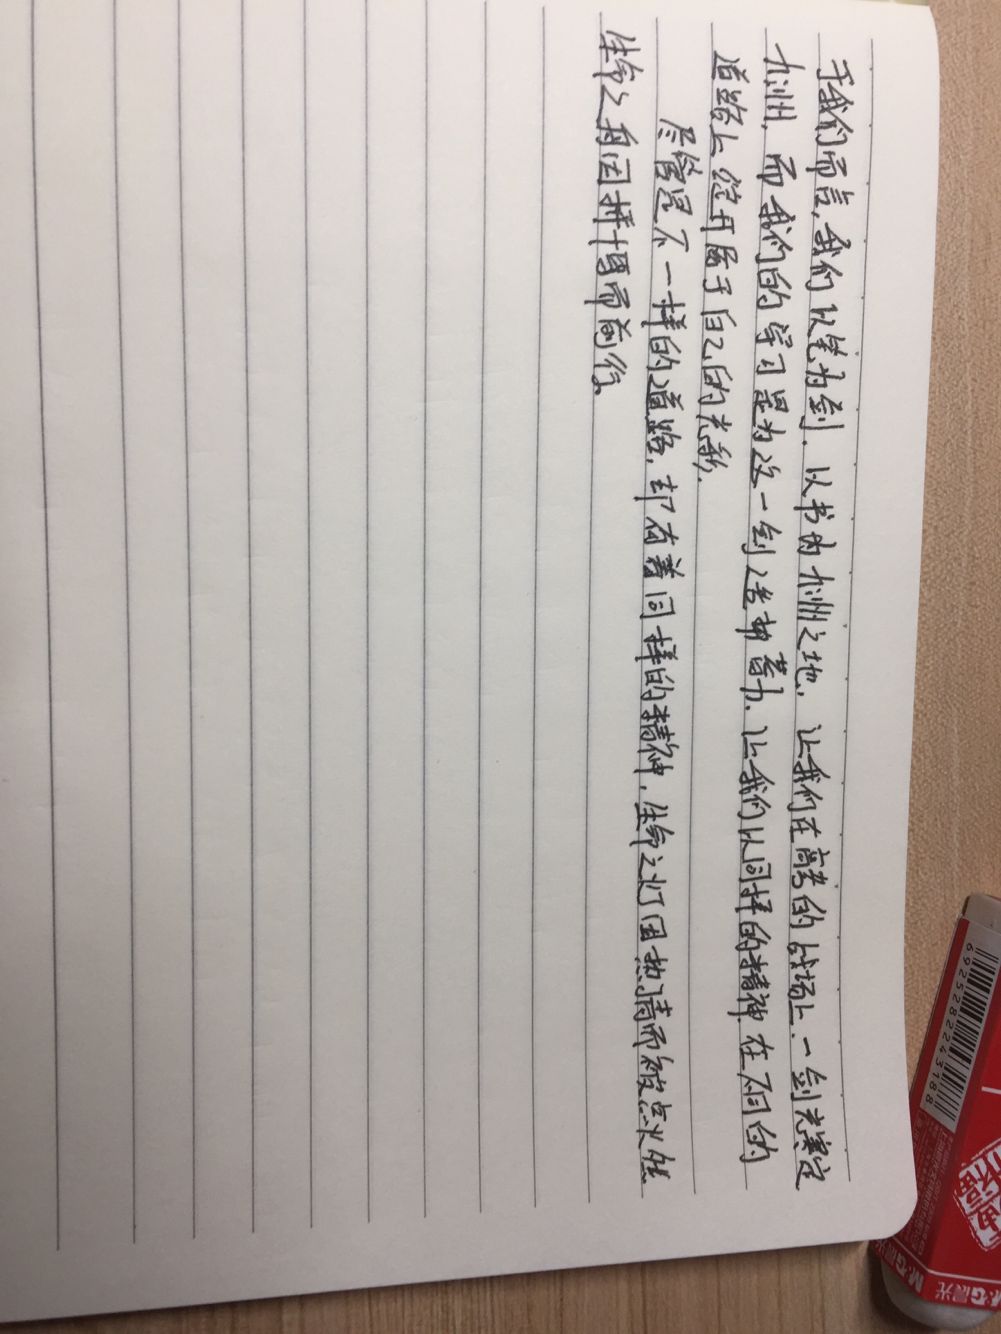 于我们而言,我们以笔为剑,以书为九州之地,让我们在高考的战场上,一剑光寒定
九州,而我们的学习是为这一剑造势蓄力,让我们以同样的精神在不同的
道路上绽开属于自己的光彩.
尽管是不一样的道路,却有着同样的精神,生命之灯因热情而被点火燃
生命之舟因拼搏而前行.
6925282243188
M&G晨光